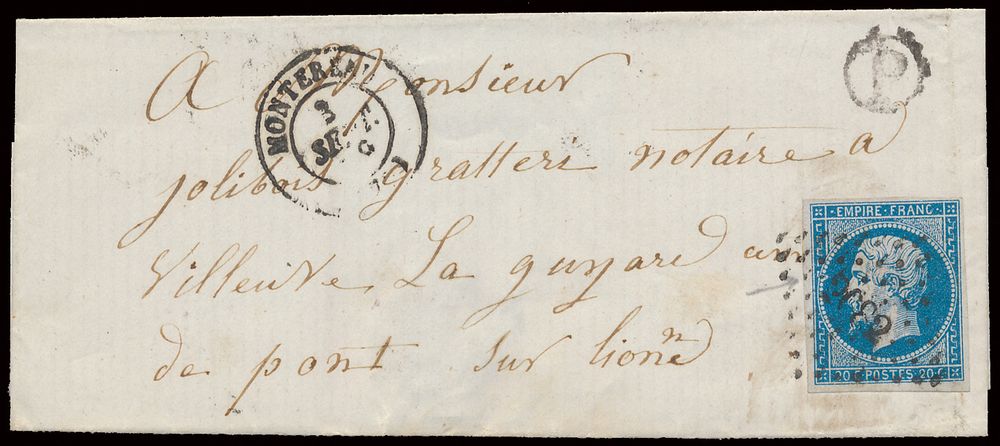 A Monsieur
jolibois gratteri notaire a
Villeuve La guyard arr
de pont sur lionne
MONTEREAU
3
SEPT.
P
EMPIRE FRANC
20 C POSTES 20 C